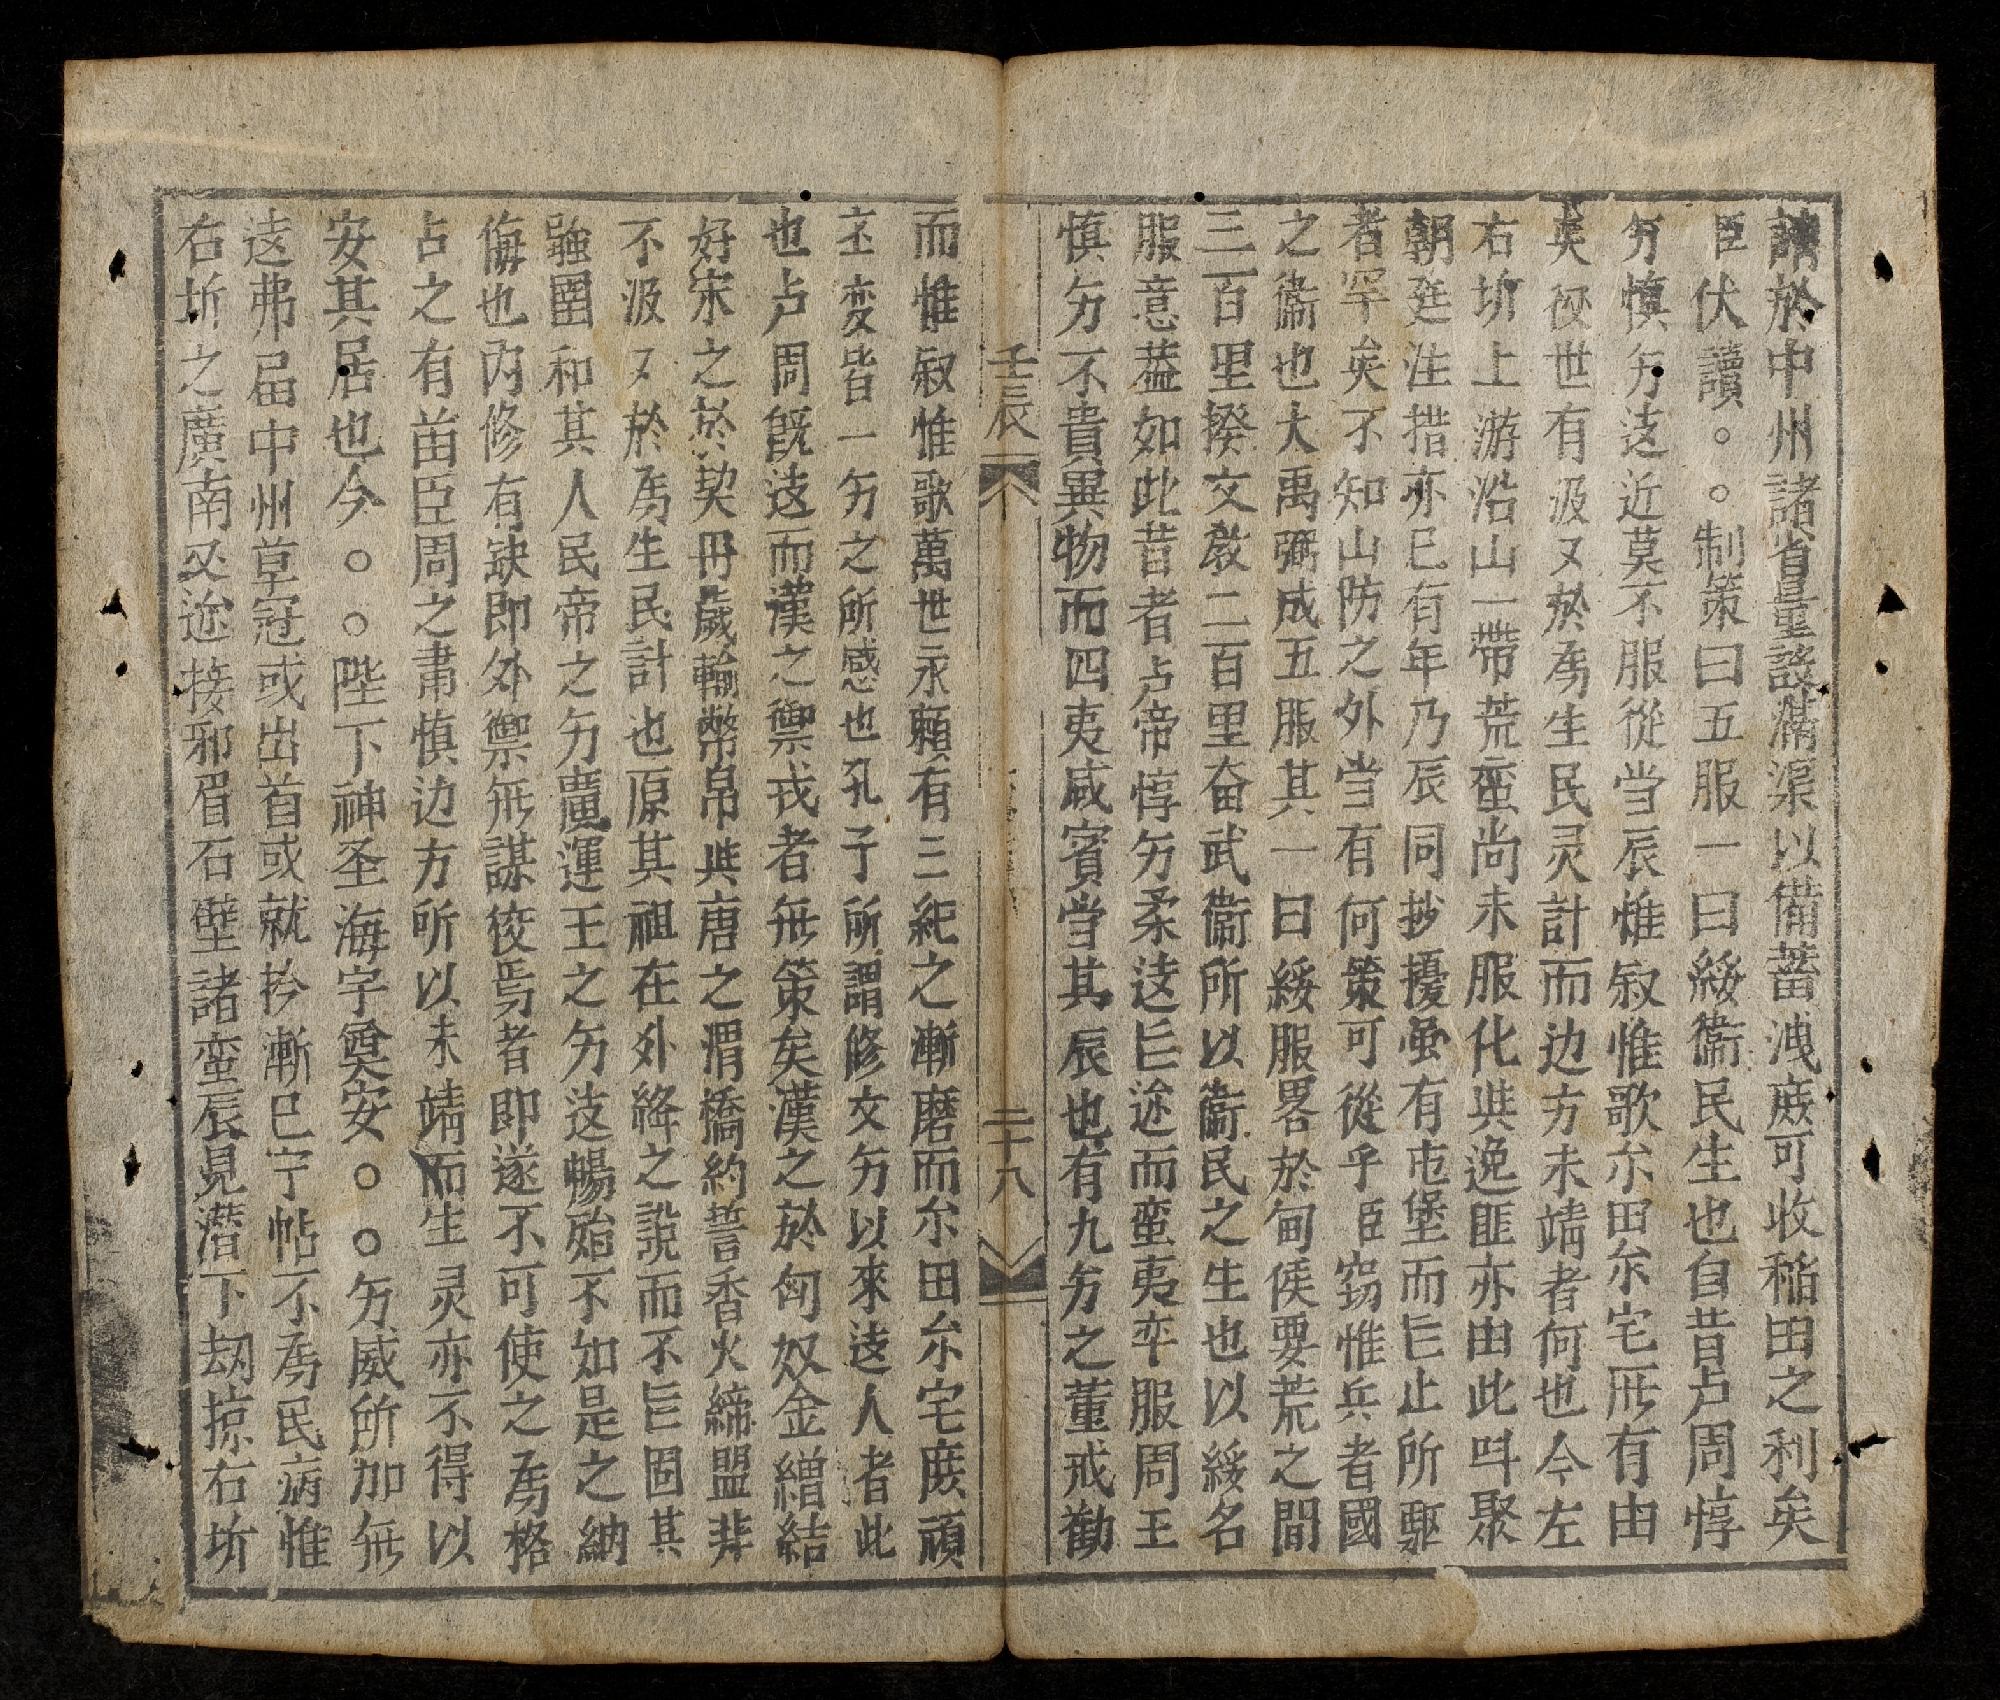 請於中州諸省量設溝渠以備蓄洩庶可收稲田之利矣
臣伏讀○○制策曰五服一曰綏衞民生也自昔占周惇
𫝆慎𫝆逺近莫不服從当辰惟叙惟歌尒田尒宅𠩄有由
矣役世有汲又於為生民灵計而边方未靖者何也今左
右圻上游沿山一帶荒蛮尚未服化與逸匪亦由此叫聚
朝廷注措亦已有年乃辰同抄擾虽有屯堡而㠯止所驅
者罕矣不知山防之外当有何策可從乎臣窃惟兵者國
之衞也大禹弼成五服其一曰綏服畧於甸侯要荒之間
三百里揆文教二百里奋武衞所以衞民之生也以綏名
服意葢如此昔者占帝惇𫝆柔逺㠯迩而蛮夷卒服周王
慎𫝆不貴異物而四夷咸賓当其辰也有九𫝆之董戒勸
壬辰
二十八
而惟叙惟歌萬世永賴有三紀之漸磨而尒田尒宅庶頑
丕变皆一𫝆之所感也孔子所謂修文𫝆以來逺人者此
也占周旣逺而漢之禦戎者無策矣漢之於匈奴金繒結
好宋之於契丹歲輸幣帛與唐之渭橋約誓香火締盟非
不汲又於為生民計也原其祖在外絳之說而不㠯固其
疆圉和其人民帝之𫝆廣運王之𫝆逺暢殆不如是之納
侮也内修有缺即外禦無謀佼焉者即遂不可使之為格
占之有苗臣周之肅慎边方所以未靖而生灵亦不得以
安其居也今○○陛下神圣海宇奠安○○𫝆威所加無
逺弗届中州草冦或出首或就矜漸已宁帖不為民病惟
右圻之廣南又迩接邪眉石壁諸蛮辰見潜下刧掠右圻